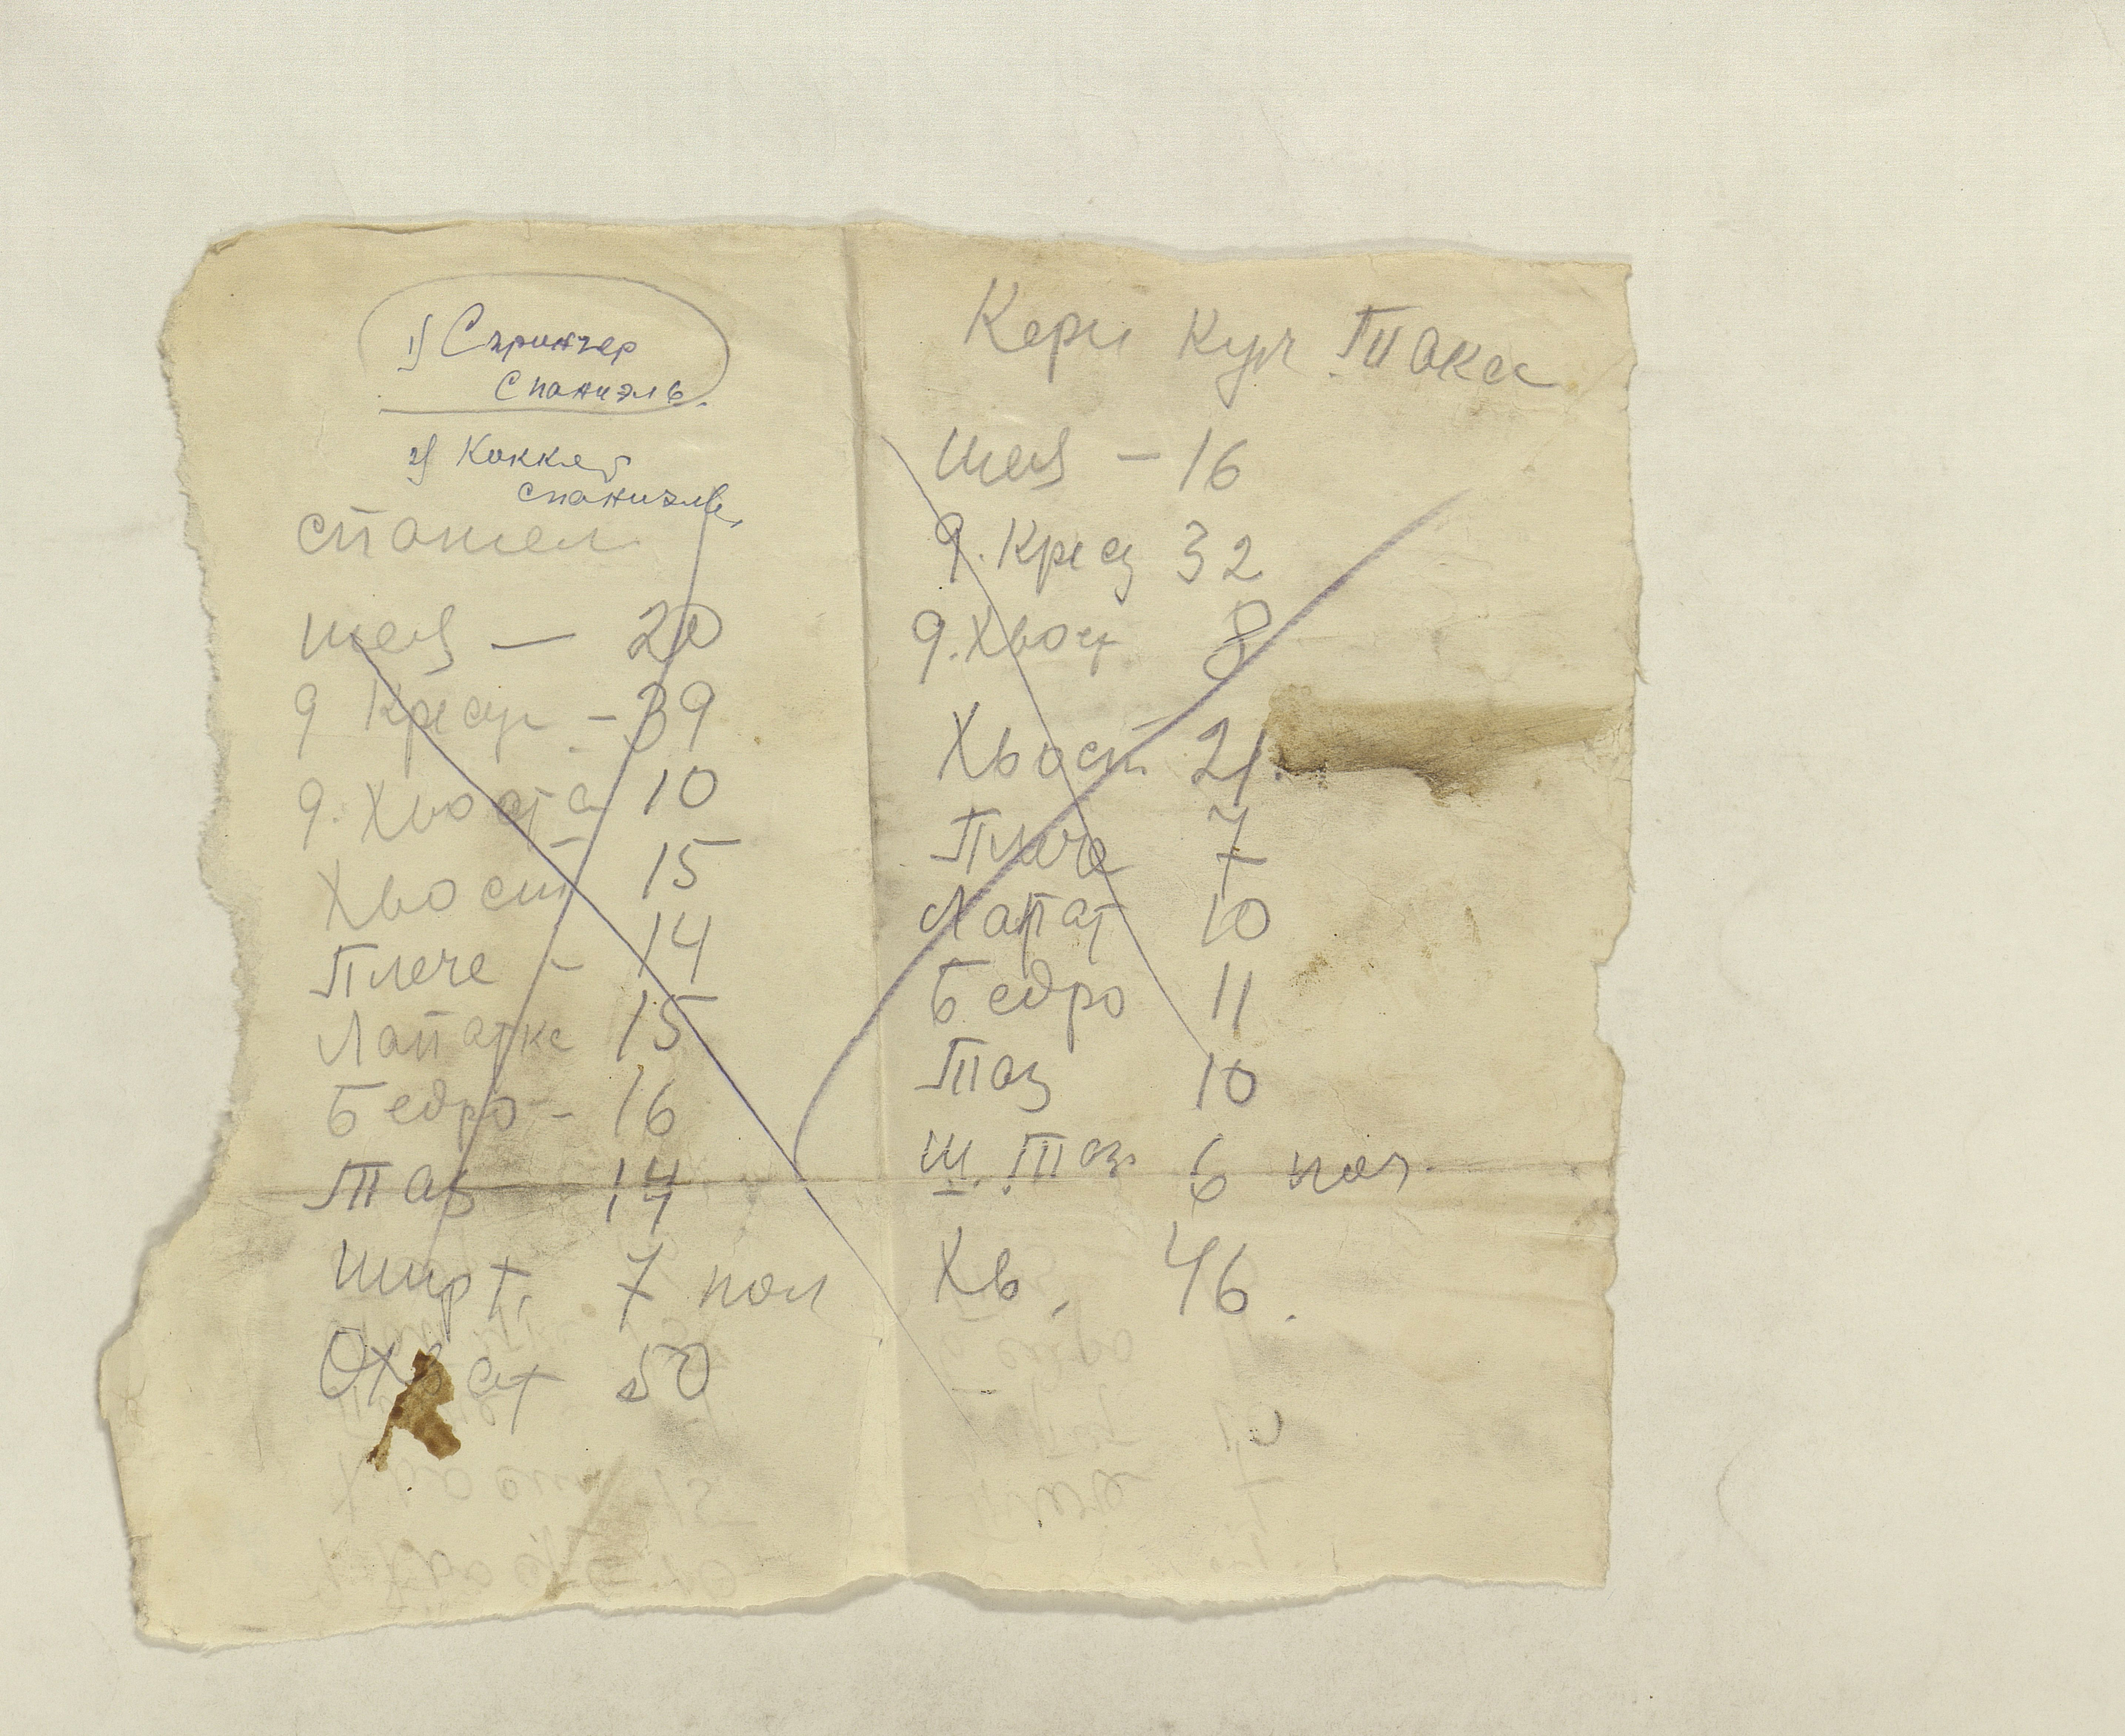 1) Спрингер
спаниэль.
2) Коккер
спаниэль,
спаниел
шея — 20
9 Кресц - 39
9. Хвоста 10
Хвост 15
Плече - 14
Лапатке 15
Бедро - 16
Таз 14
шир т. 7 пол
Охват 50
Кери Куч Такса
шея - 16
9. Крец 32
9. Хвост 8
Хвост 21.
Плече 7
Лапат 10
Бедро 11
Таз 10
ш. Таз 6 пол
Хв. 46.